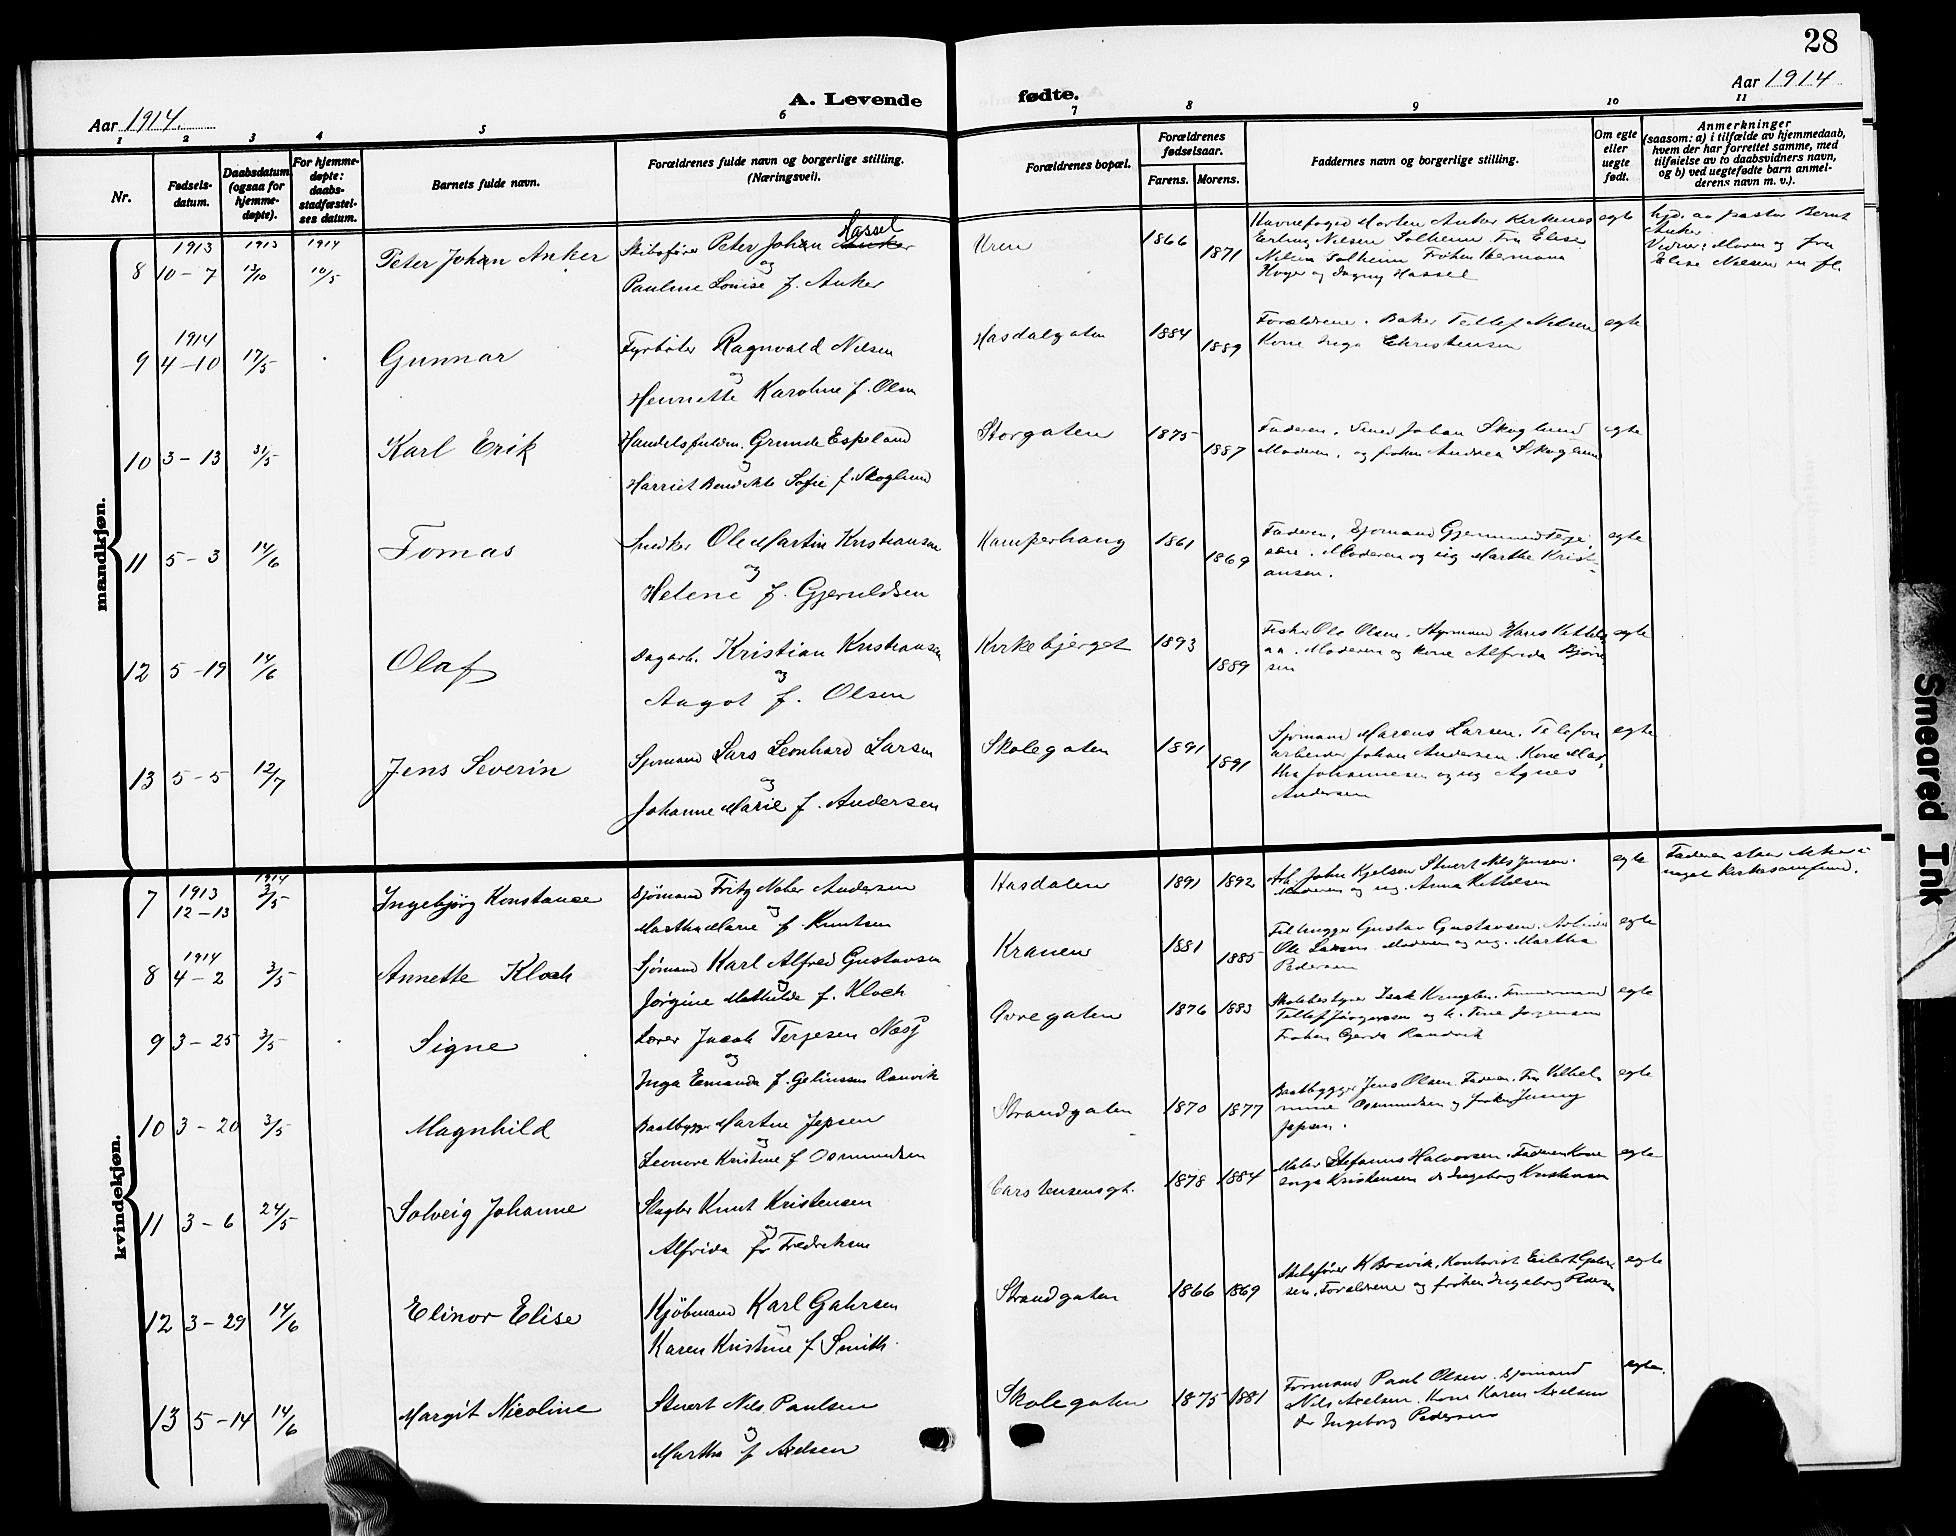 28
Aar 1914.
A. Levende
fødte.
Aar 1914
1 2 3 4 5 6 7 8 9 10 11
Nr.
Fødsels-
datum.
Daabsdatum
(ogsaa for
hjemme-
døpte).
For hjemme-
døpte:
daabs-
stadfæstel-
ses datum.
Barnets fulde navn.
Forældrenes fulde navn og borgerlige stilling.
(Næringsvei).
Forældrenes bopæl.
Forældrenes
fødselsaar.
Farens. Morens.
Faddernes navn og borgerlige stilling.
Om egte
eller
uegte
født.
Anmerkninger
(saasom: a) i tilfælde av hjemmedaab,
hvem der har forrettet samme, med
tilføielse av to daabsvidners navn,
og b) ved uegtefødte barn anmel-
derens navn m. v.).
mandkjøn.
1913 1913 1914
8 10-7 13/10 10/5 Peter Johan Anker
Skibsfører Peter Johan Anker Hassel
og
Pauline Louise f. Anker
1866 1871
Havnefoged Morten Anker Kirkenes
Erling Nielsen Solheim Fru Elise
Nilsen Solheim Frøken
og Dagny Hassel
egte
hjd. av pastor Bernt
Anker
Vidner: Moren og fru
Elise Nielsen m fl.
1914
9 4-10 17/5 Gunnar
Fyrbøter Ragnvald Nilsen
og
Henriette Karoline f. Olsen
Hasdalgaten 1884 1889
Forældrene. Baker Tellef Nilsen
Kone Inga Christensen
egte
10 3-13 31/5 Karl Erik
Handelsfuldm. Grunde Espeland
og
Harriet Benedikte Sofie f. Skoglund
Storgaten 1875 1887
Faderen. Johan Skoglund
Moderen. og frøken Andrea Skoglund
egte
11 5-3 14/6 Tomas
Snedker Ole Martin Kristiansen
og
Helene f. Gjeruldsen
Kamperhaug 1861 1869
Faderen, Sjømand Gjermund Terje
aasen. Moderen og pig Marthe Kristi-
ansen.
egte
12 5-19 14/6 Olaf
Dagarb. Kristian Kristiansen
og
Aagot f. Olsen
Kirkebjerget 1893 1889
Fisker Ole Olsen. Styrmand Hans
Moderen og kone Alfrida Bjørn
sen
egte
13 5-5 12/7 Jens Severin
Sjømand Lars Leonhard Larsen
og
Johanne Marie f. Andersen
Skolegaten 1891 1891
Sjømand Marcus Larsen. Telefon
arbeider Johan Andersen. Kone Mar-
tha Johannesen og pig Agnes
Andersen
egte
kvindekjøn.
1913 1914
7 12-13 3/5 Ingebjørg Konstanse
Sjømand Fritz Andersen
og
Martha Marie f. Knutsen
Hasdalen 1891 1892
Arb. John Kjelsen Stuert Nils Jensen.
Moderen og pig. Anna Kittelsen
egte
Faderen staar ikke i
noget kirkesamfund.
1914
8 4-2 3/5 Annette Kloch
Sjømand Karl Alfred Gustavsen
og
Jørgine Mathilde f. Kloch
Kranen 1881 1885
Gustav Gustavsen. Arbeider
Ole Larsen. Moderen og pig. Martha
Pedersen
egte
9 3-25 3/5 Signe
Lærer Jacob Terjesen Næsj
og
Inga Emanda f. Ranvik
Øvregaten 1876 1883
Skolebestyrer Isak Tømmermand
Tellef Jørgensen og k. Tine Jørgensen
Frøken Gerda Randvik
egte
10 3-20 3/5 Magnhild
Baatbygger Martin Jepsen
og
Leonore Kristine f Osmundsen
Strandgaten 1870 1877
Baatbygger Jens Olsen. Faderen. Fru Vilhel-
mine Osmundsen og frøken Jenny
Jepsen.
egte
11 3-6 24/5 Solveig Johanne
Slagter Knut Kristensen
og
Alfrida f. Fredriksen
Carstensensgt. 1878 1884
Maler Stefanus Halvorsen. Faderen Kone
Inga Kristensen do Ingeborg Kristensen
egte
12 3-29 14/6 Elinor Elise
Kjøbmand Karl Gahrsen
og
Karen Kristine f Smith.
Strandgaten 1866 1869
Skibsfører K Bosvik, Kontorist Eilert Gahr-
sen. Forældrene og frøken Ingeborg Pedersen
egte
13 5-14 14/6 Margit Nicoline
Stuert Nils Paulsen
og
Martha f Axelsen
Skolegaten 1875 1881
Formand Paul Olsen. Sjømand
Nils Axelsen. Kone Karen Axelsen
do Ingeborg Pedersen
egte.
Smeared Ink